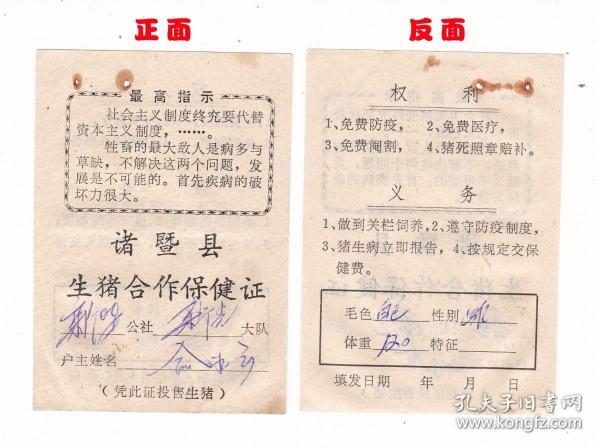 正面
最高指示
社会主义制度终究要代替
资本主义制度，……。
牲畜的最大敌人是病多与
草缺，不解决这两个问题，发
展是不可能的。首先疾病的破
坏力很大。
诸暨县
生猪合作保健证
公社 大队
户主姓名
（凭此证投售生猪）
反面
权利
1、免费防疫， 2、免费医疗，
3、免费阉割， 4、猪死照章赔补。
义务
1、做到关栏饲养，2、遵守防疫制度，
3、猪生病立即报告，4、按规定交保
健费。
毛色 白 性别
体重 120 特征
填发日期 年 月 日
孔夫子旧书网
kongfz.com